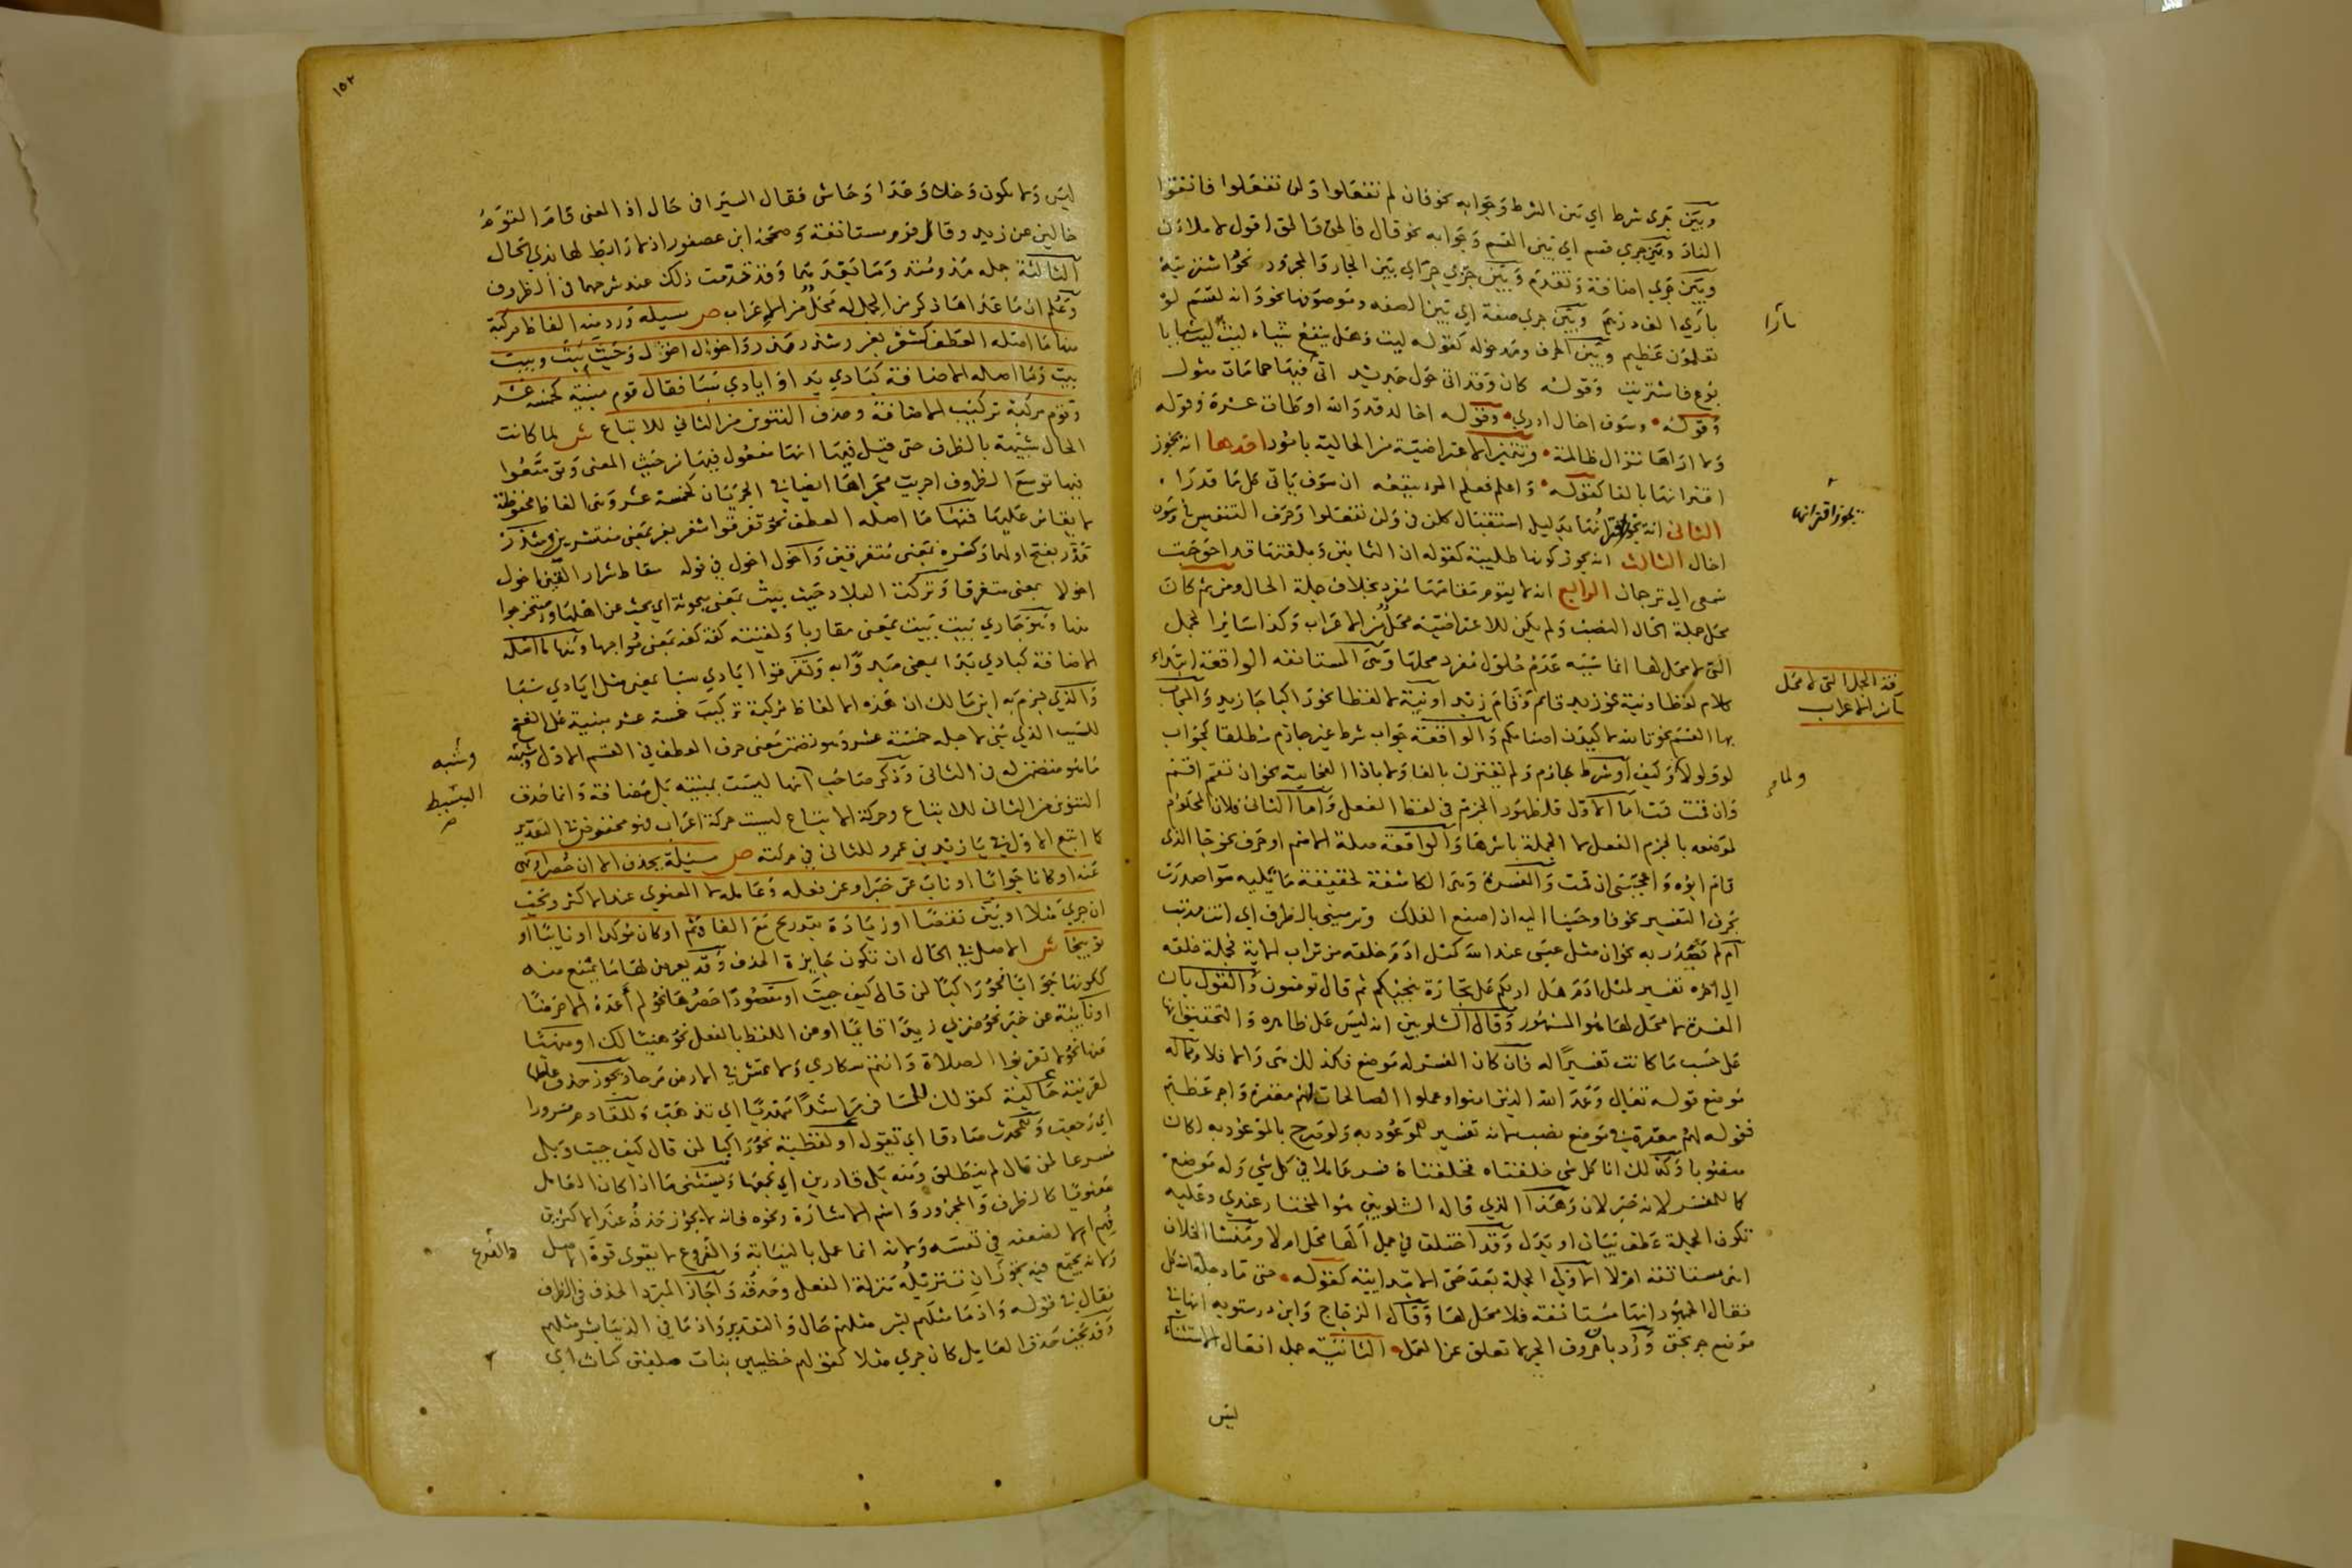 وبين جزئ شرط اي بين الشرط وجوابه نحو فان لم تفعلوا ولن تفعلوا فاتقوا
النار وبين جزي قسم اي بين القسم وجوابه نحو قال فالحق والحق اقول لاملان
وبين جزي اضافة وتقدم وبين جزي جر اي بين الجار والمجرور نحو اشتريته
باري الف درهم وبين جزي صفة اي بين الصفه وموصوفها نحو وانه لقسم لو
تعلمون عظيم وبين الحرف ومدخوله كقوله ليت وهل ينفع شياء ليت ليت شبابا
بوع فاشتريت وقوله كان وقد اتى حول جديد اثافيها حمامات مثول
وقوله وسوف اخال ادري وقوله اخالد قد والله اوطات عشوة وقوله
ولا اراها تزال ظالمة وتتميز الاعتراضية من الحالية بامور احدها انه يجوز
اقترانها بالفا كقوله واعلم فعلم المرء ينفعه ان سوف ياتى كل ما قدرا
الثانى انه يجوز اقترانها بدليل استقبال كلن في ولن تفعلوا وحرف التنفيس في وسوف
اخال الثالث انه يجوز كونها طلبية كقوله ان الثمانين وبلغتها قد احوجت
سمعى الى ترجمان الرابع انه لا يقوم مقامها مفرد بخلاف جملة الحال ومن ثم كان
محل جملة الحال النصب ولم يكن للاعتراضية محل من الاعراب وكذا سائر الجمل
التى لا محل لها انما سببه عدم حلول مفرد محلها وهى المستانفه الواقعة ابتداء
كلام لفظا ونية نحو زيد قائم وقام زيد او نية لا لفظا نحو راكبا جا زيد والمجاب
بها القسم نحو تالله لاكيدن اصنامكم والواقعة جواب شرط غير جازم مطلقا كجواب
لو ولولا وكيف او شرط جازم ولم يقترن بالفا ولا باذا الفجائية نحو ان تقم اقم
وان قمت قمت اما الاول فلظهور الجزم في لفظ الفعل واما الثانى فلان المحكوم
لموضعه بالجزم الفعل لا الجملة باسرها والواقعة صلة لاسم او حرف نحو جا الذى
قام ابوه واعجبنى ان قمت والمفسرة وهى الكاشفة لحقيقة ما تليه سوا صدرت
بحرف التفسير نحو فاوحينا اليه ان اصنع الفلك وترميننى بالطرف اي انت مذنب
ام لم تصدر به نحو ان مثل عيسى عند الله كمثل ادم خلقه من تراب الاية فجملة خلقه
الى اخره تفسير لمثل ادم هل ادلكم على تجارة تنجيكم ثم قال تومنون والقول بان
المفسرة لا محل لها هو المشهور وقال الشلوبين انه ليس على ظاهره والتحقيق انها
على حسب ما كانت تفسيرًا له فان كان المفسر له موضع فكذلك هى والا فلا ومما له
موضع قوله تعالى وعد الله الذين امنوا وعملوا الصالحات لهم مغفرة واجر عظيم
فقوله لهم مغفرة في موضع نصب لانه تفسير للموعود به ولو صرح بالموعود به لكان
منصوبا وكذلك انا كل شى خلقناه فخلقناه مفسر عاملا في كل شي وله موضع
كما للمفسر لانه خبر لان وهذا الذي قاله الشلوبين هو المختار عندي وعليه
تكون الجملة عطف بيان او بدل وقد اختلف في جمل الها محل ام لا ومنشا الخلاف
اهى مستانفه ام لا الاولى الجملة بعد حتى الابتدائية كقوله حتى ماء دجلة اشكل
فقال الجمهور انها مستانفة فلا محل لها وقال الزجاج وابن درستويه انها في
موضع جر بحتى ورد بان حروف الجر لا تعلق عن العمل الثانية جمل افعال الاستثناء
ليس
يجوز اقترانها
قف الجمل التى لا محل
لها من الاعراب
١٥٢
ليس ولا يكون وخلا وعدا وحاشى فقال السيرافى حال اذ المعنى قام القوم
خالين عن زيد وقال قوم مستانفة وصححه ابن عصفور اذ لا رابط لها بذي الحال
الثالثة جملة مذ ومنذ وما بعدهما وقد تقدمت ذلك عند شرحهما في الظروف
وعلم ان ما عدا ما ذكر من الجمل له محل من الاعراب ص مسيلة ورد منه الفاظ مركبة
منها ما اصله العطف كشغر بغر وشذر مذر واخول اخول وحيث بيث وبيت
بيت وما اصله الاضافة كبادي بدا وايادي سبا فقال قوم مبنية كخمسة عشر
وقوم مركبة تركيب الاضافة وحذف التنوين من الثاني للاتباع ش لما كانت
الحال شبيهة بالظرف حتى قيل فيها انها مفعول فيها من حيث المعنى وتوسعوا
فيها توسع الظروف اجريت مجراها ايضا في الجزئان كخمسة عشر وهى الفاظ محفوظة
لا يقاس عليها فمنها ما اصله العطف نحو تفرقوا شغر بغر بمعنى منتشرين وشذر
مذر بفتح اولهما وكسره بمعنى متفرقين واخول اخول في قوله سقاط شرار القين اخول
اخولا بمعنى متفرقا وتركت البلاد حيث بيث بمعنى مبحوثة اي بحث عن اهلها واستخرجوا
منها وهو جاري بيت بيت بمعنى مقاربا ولقيته كفة كفة بمعنى مواجها ومنها ما اصله
الاضافة كبادي بدا بمعنى مبدوا به وتفرقوا ايادي سبا بمعنى مثل ايادي سبا
والذي جزم به ابن مالك ان هذه الالفاظ مركبة تركيب خمسة عشر مبنية على الفتح
للسبب الذي بنى لاجله خمسة عشر وهو تضمن معنى حرف العطف في القسم الاول وشبه
ما هو متضمن له في الثانى وذكر صاحب انها ليست بمبنيه بل مضافة وانما حذف
التنوين من الثانى للاتباع وحركة الاتباع ليست حركة اعراب فهو مخفوض في التقدير
كما اتبع الاول في يا زيد بن عمرو للثانى في حركته ص مسئلة يحذف الا ان حصر او نهى
عنه او كان جوابًا او ناب عن خبر او عن فعله وعامله لا المعنوي عند الاكثر ويجب
ان جرى مثلا او بين نقصًا او زيادة بتدريج مع الفا وثم او كان موكدا او نايبًا او
توبيخا ش الاصل في الحال ان تكون جايزة الحذف وقد يعرض لها ما يمنع منه
ككونها جوابا نحو راكبًا لمن قال كيف جيت او مقصودًا حصرها نحو لم أعده الا حرضًا
او نايبة عن خبر نحو ضربي زيدًا قائمًا او من اللفظ بالفعل نحو هنيئًا لك او منهيًا
عنها نحو لا تقربوا الصلاة وانتم سكاري ولا تمش في الارض مرحا ويجوز حذف عاملها
لقرينة حالية كقولك للمسافر راشدًا مهديًا اي تذهب وللقادم مسرورا
اي رجعت وللمحدث صادقا اي تقول او لفظية نحو راكبا لمن قال كيف جيت وبلى
مسرعا لمن قال لم ينطلق ومنه بلى قادرين اي نجمعها ويستثنى ما اذا كان العامل
معنويًا كالظرف والمجرور واسم الاشارة ونحوه فانه لا يجوز حذفه عند الاكثرين
فهم ام لا لضعفه في نفسه ولانه انما عمل بالنيابة والفروع لا يقوى قوة الاصل
ولانه يجتمع فيه تجوزان تنزيله منزلة الفعل وحذفه واجاز المبرد الحذف في الظرف
فقال في قوله واذ ما مثلهم بشر مثلهم حال والتقدير واذ ما في الدنيا بشر مثلهم
وقد يجب حذف العامل كان جرى مثلا كقولهم حظيين بنات صلفين كنات اي
وشبه
البسيط
والفرع